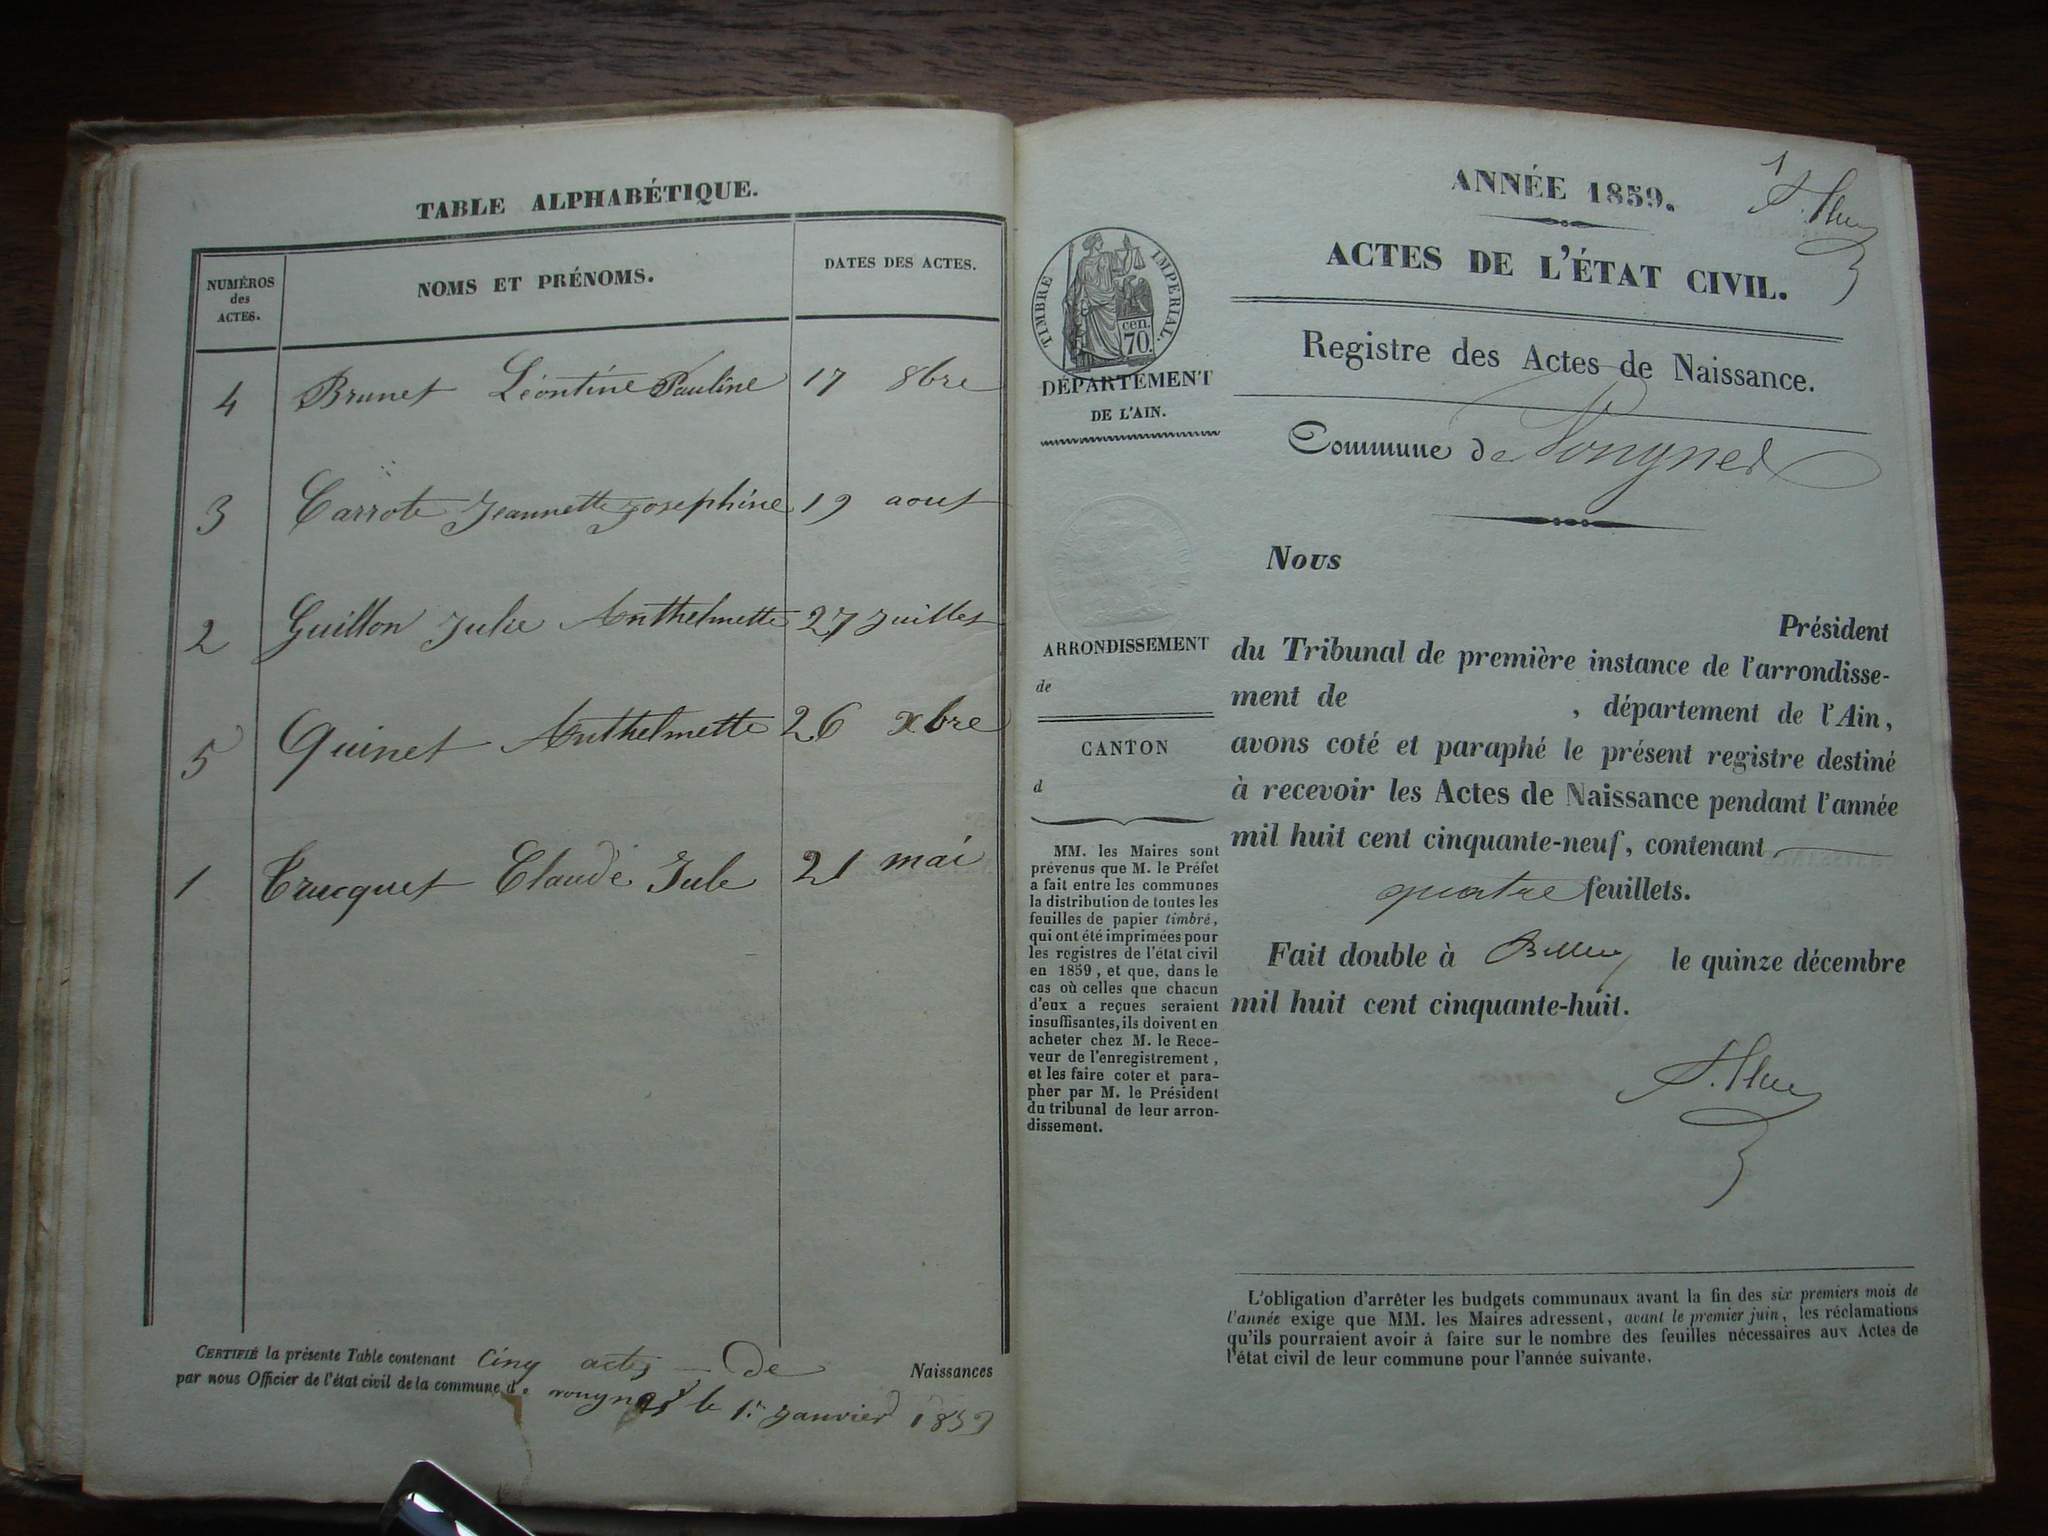 TABLE ALPHABÉTIQUE.
NUMÉROS des ACTES. NOMS ET PRÉNOMS. DATES DES ACTES.
4 Brunet Léontine Pauline 17 8bre
3 Carrote Jeannette Josephine 19 aout
2 Guillon Julie Anthelmette 27 juillet
5 Quinet Anthelmette 26 xbre
1 Trucquet Claude Jule 21 mai
CERTIFIÉ la présente Table contenant Cinq actes de Naissances
par nous Officier de l'état civil de la commune de le 1er janvier 1859
1
ANNÉE 1859.
ACTES DE L'ÉTAT CIVIL.
TIMBRE IMPÉRIAL.
cen.
70.
DÉPARTEMENT
DE L'AIN.
Registre des Actes de Naissance.
Commune de Pougnes
Nous
Président
du Tribunal de première instance de l'arrondisse-
ment de , département de l'Ain,
avons coté et paraphé le présent registre destiné
à recevoir les Actes de Naissance pendant l'année
mil huit cent cinquante-neuf, contenant
quatre feuillets.
Fait double à Belley le quinze décembre
mil huit cent cinquante-huit.
ARRONDISSEMENT
de
CANTON
d
MM. les Maires sont
prévenus que M. le Préfet
a fait entre les communes
la distribution de toutes les
feuilles de papier timbré,
qui ont été imprimées pour
les registres de l'état civil
en 1859, et que, dans le
cas où celles que chacun
d'eux a reçues seraient
insuffisantes, ils doivent en
acheter chez M. le Rece-
veur de l'enregistrement,
et les faire coter et para-
pher par M. le Président
du tribunal de leur arron-
dissement.
L'obligation d'arrêter les budgets communaux avant la fin des six premiers mois de
l'année exige que MM. les Maires adressent, avant le premier juin, les réclamations
qu'ils pourraient avoir à faire sur le nombre des feuilles nécessaires aux Actes de
l'état civil de leur commune pour l'année suivante.